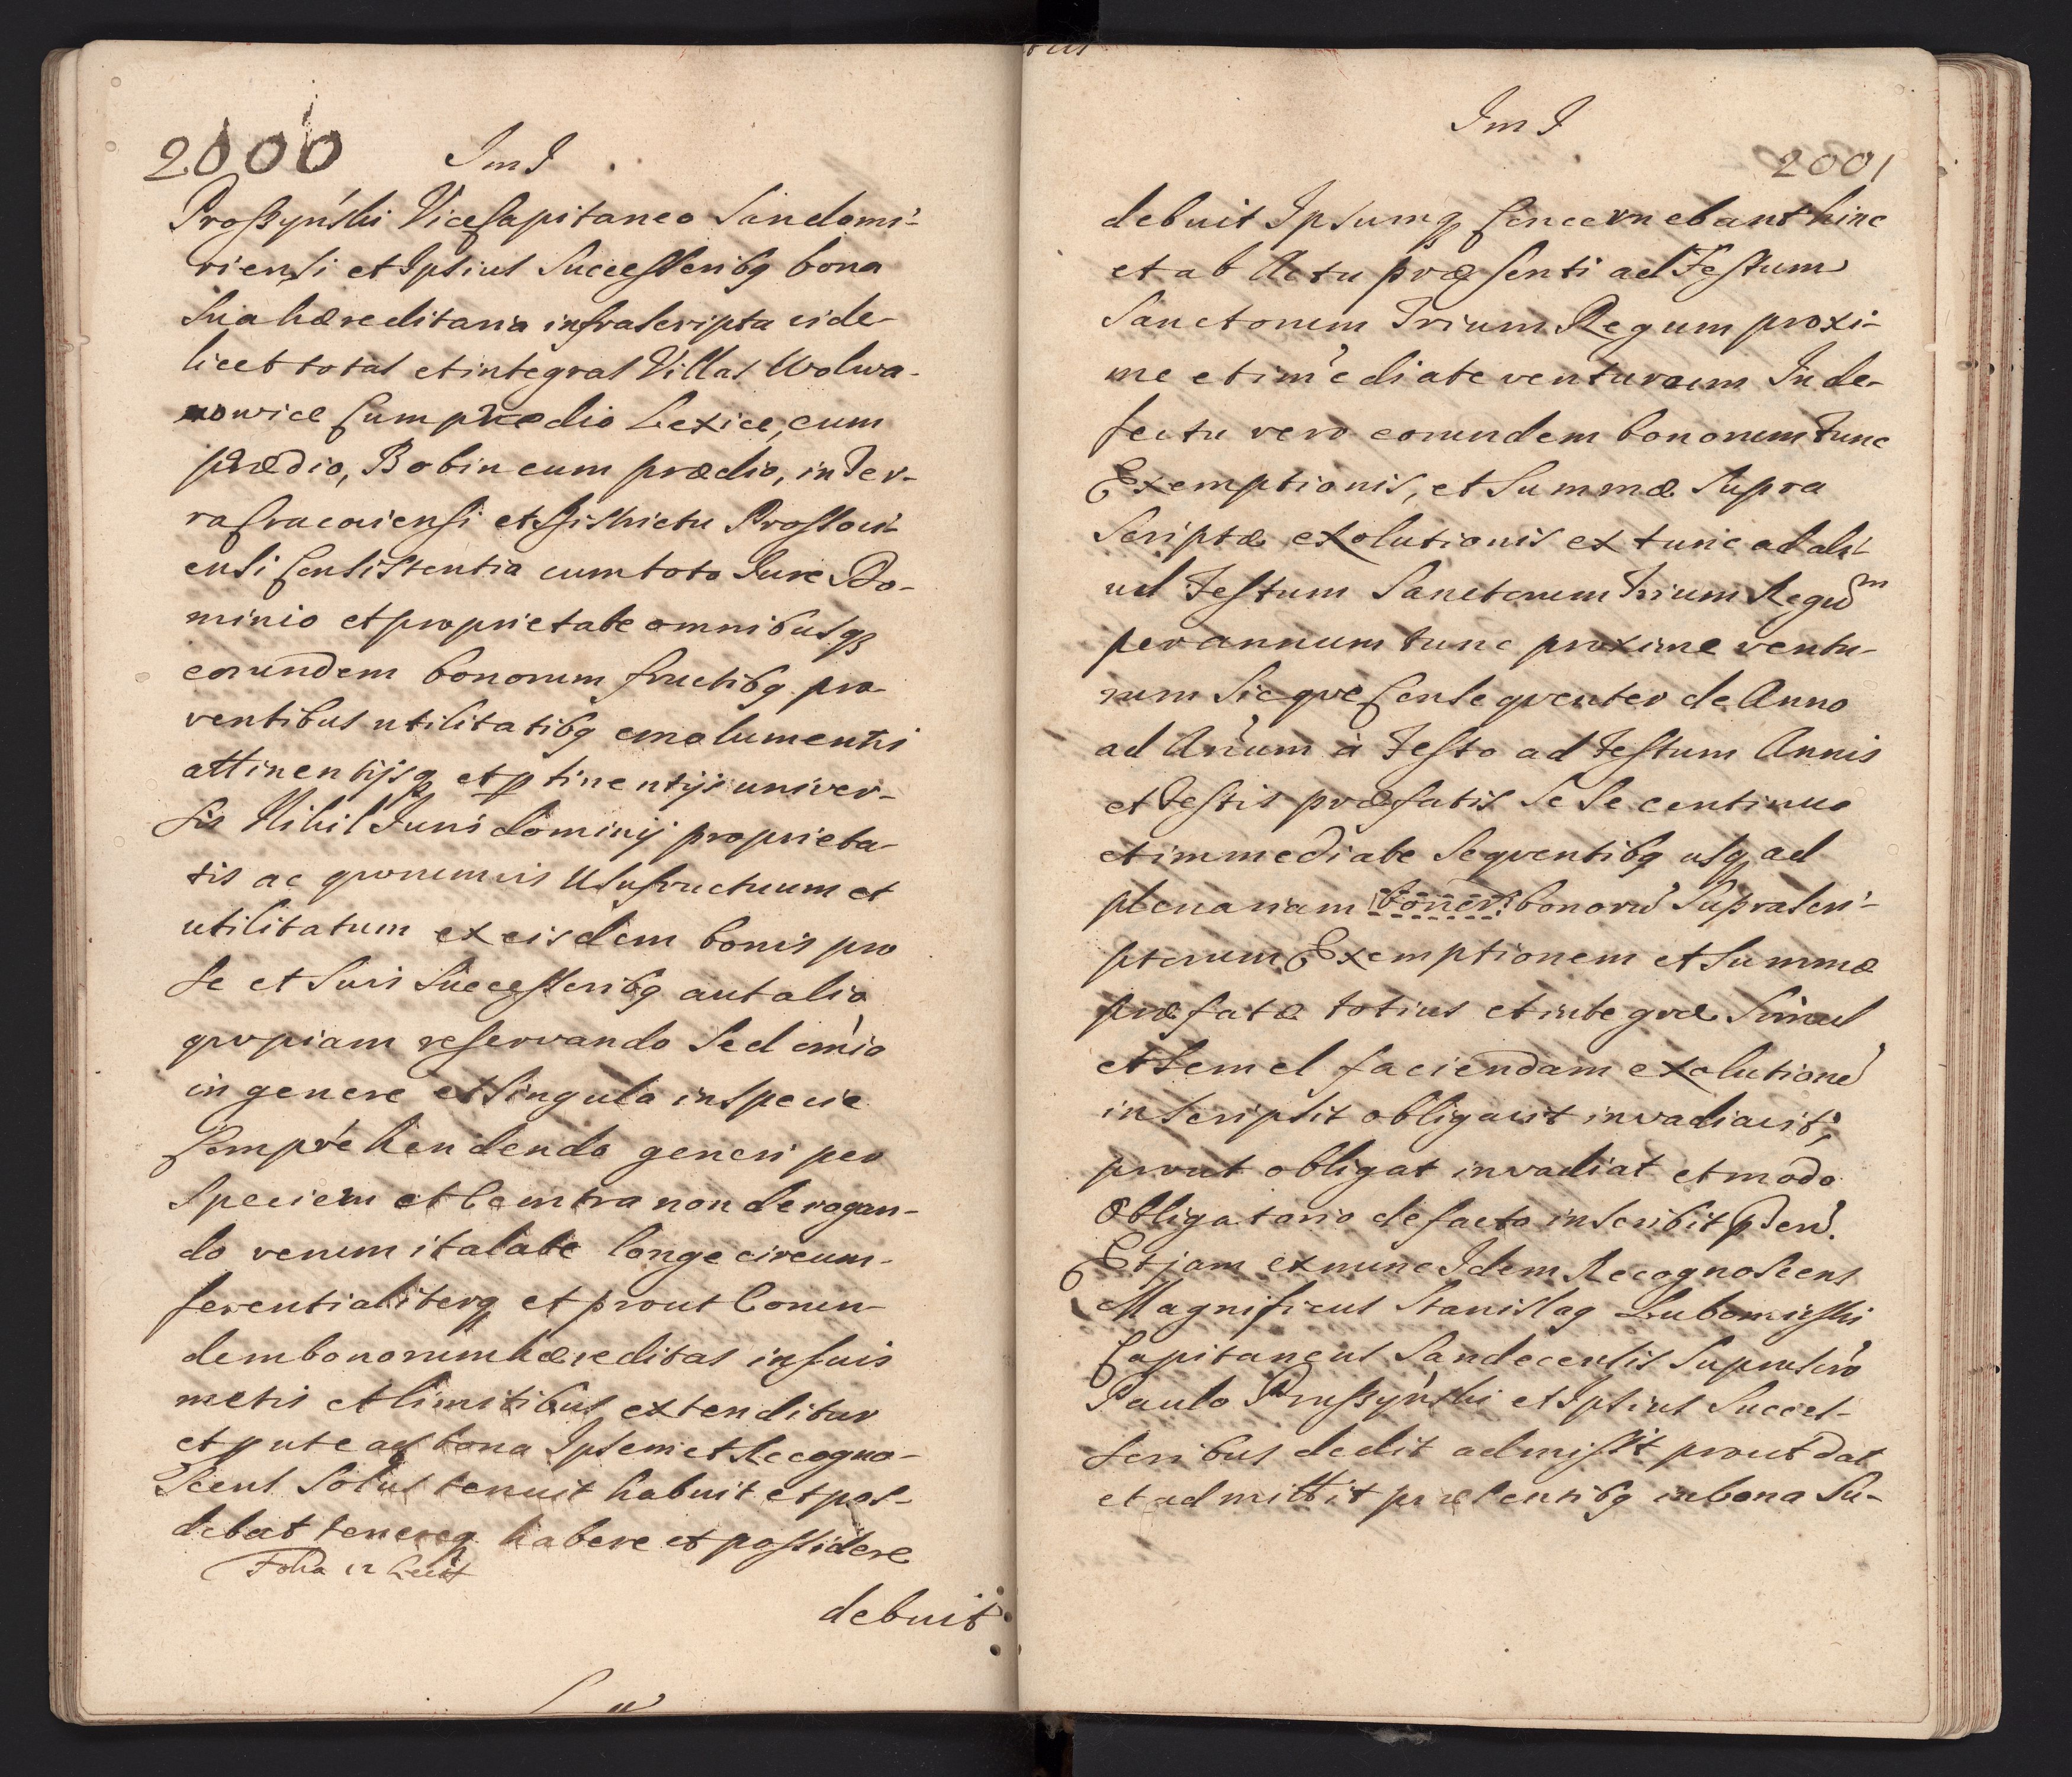 2000 ImI
Proßyński ViceCapitaneo Sandomi-
riensi et Ipsius Successoribq bona
sua hæreditaria infrascripta vide-
licet totas et integras Villas Wolwa-
nowice Cum prædio Lexice, cum
prædio, Bobin cum prædio, in Ter-
ra Cracoviensi et Districtu Prossovi-
ensi Consistentia cum toto Jure Do-
minio et proprietate omnibusqꝫ
eorundem bonorum fructibq pro-
ventibus utilitatibq emolumentis
attinentijsq et ꝑtinentijs univer-
sis Nihil Juris dominij proprieta-
tis ac quorumvis Usufructuum et
utilitatum ex eisdem bonis pro
se et suis Successoribq aut alio
quopiam reservando Sed omia
in genere et singula in specie
Comprehendendo generi per
speciem et Contra non derogan-
do verum ita late longe circum-
ferentialiterq et prout Eorun-
dem bonorum hæreditas in suis
metis et limitibus extenditur
et ꝓut ea bona Ipsemet Recogno-
scens Solus tenuit habuit et pos-
debat tenereq habere et possidere
debuit
ImI
2001
debuit Ipsumqꝫ Concernebant hinc
et ab Actu præsenti ad Festum
Sanctorum Trium Regum proxi-
me et imediate venturum In de-
fectu vero eorundem bonorum tunc
Exemptionis, et Summæ supra
scriptæ exolutionis ex tunc ad ali-
ud Festum Sanctorum Trium Regum
per annum tunc proxime ventu-
rum Sicque Consequenter de Anno
ad Anum à Festo ad Festum Annis
et Festis præfatis Se Se continuo
et immediate Sequentibq usqꝫ ad
plenariam boner bonoru Suprascri-
ptorum Exemptionem et Summæ
præfatæ totius et integræ Simul
et Semel faciendam exolutione
inscripsit obligavit invadiavit,
prout obligat invadiat et modo
Obligatorio de facto inscribit ꝑ ben.
Et jam ex nunc Idem Recognoscens
Magnificus Stanislaq Lubomirski
Capitaneus Sandecensis Supruscro
Paulo Prußyński et Ipsius Succes-
soribus dedit admissit prout dat
et admittit præsentibq in bona Su-